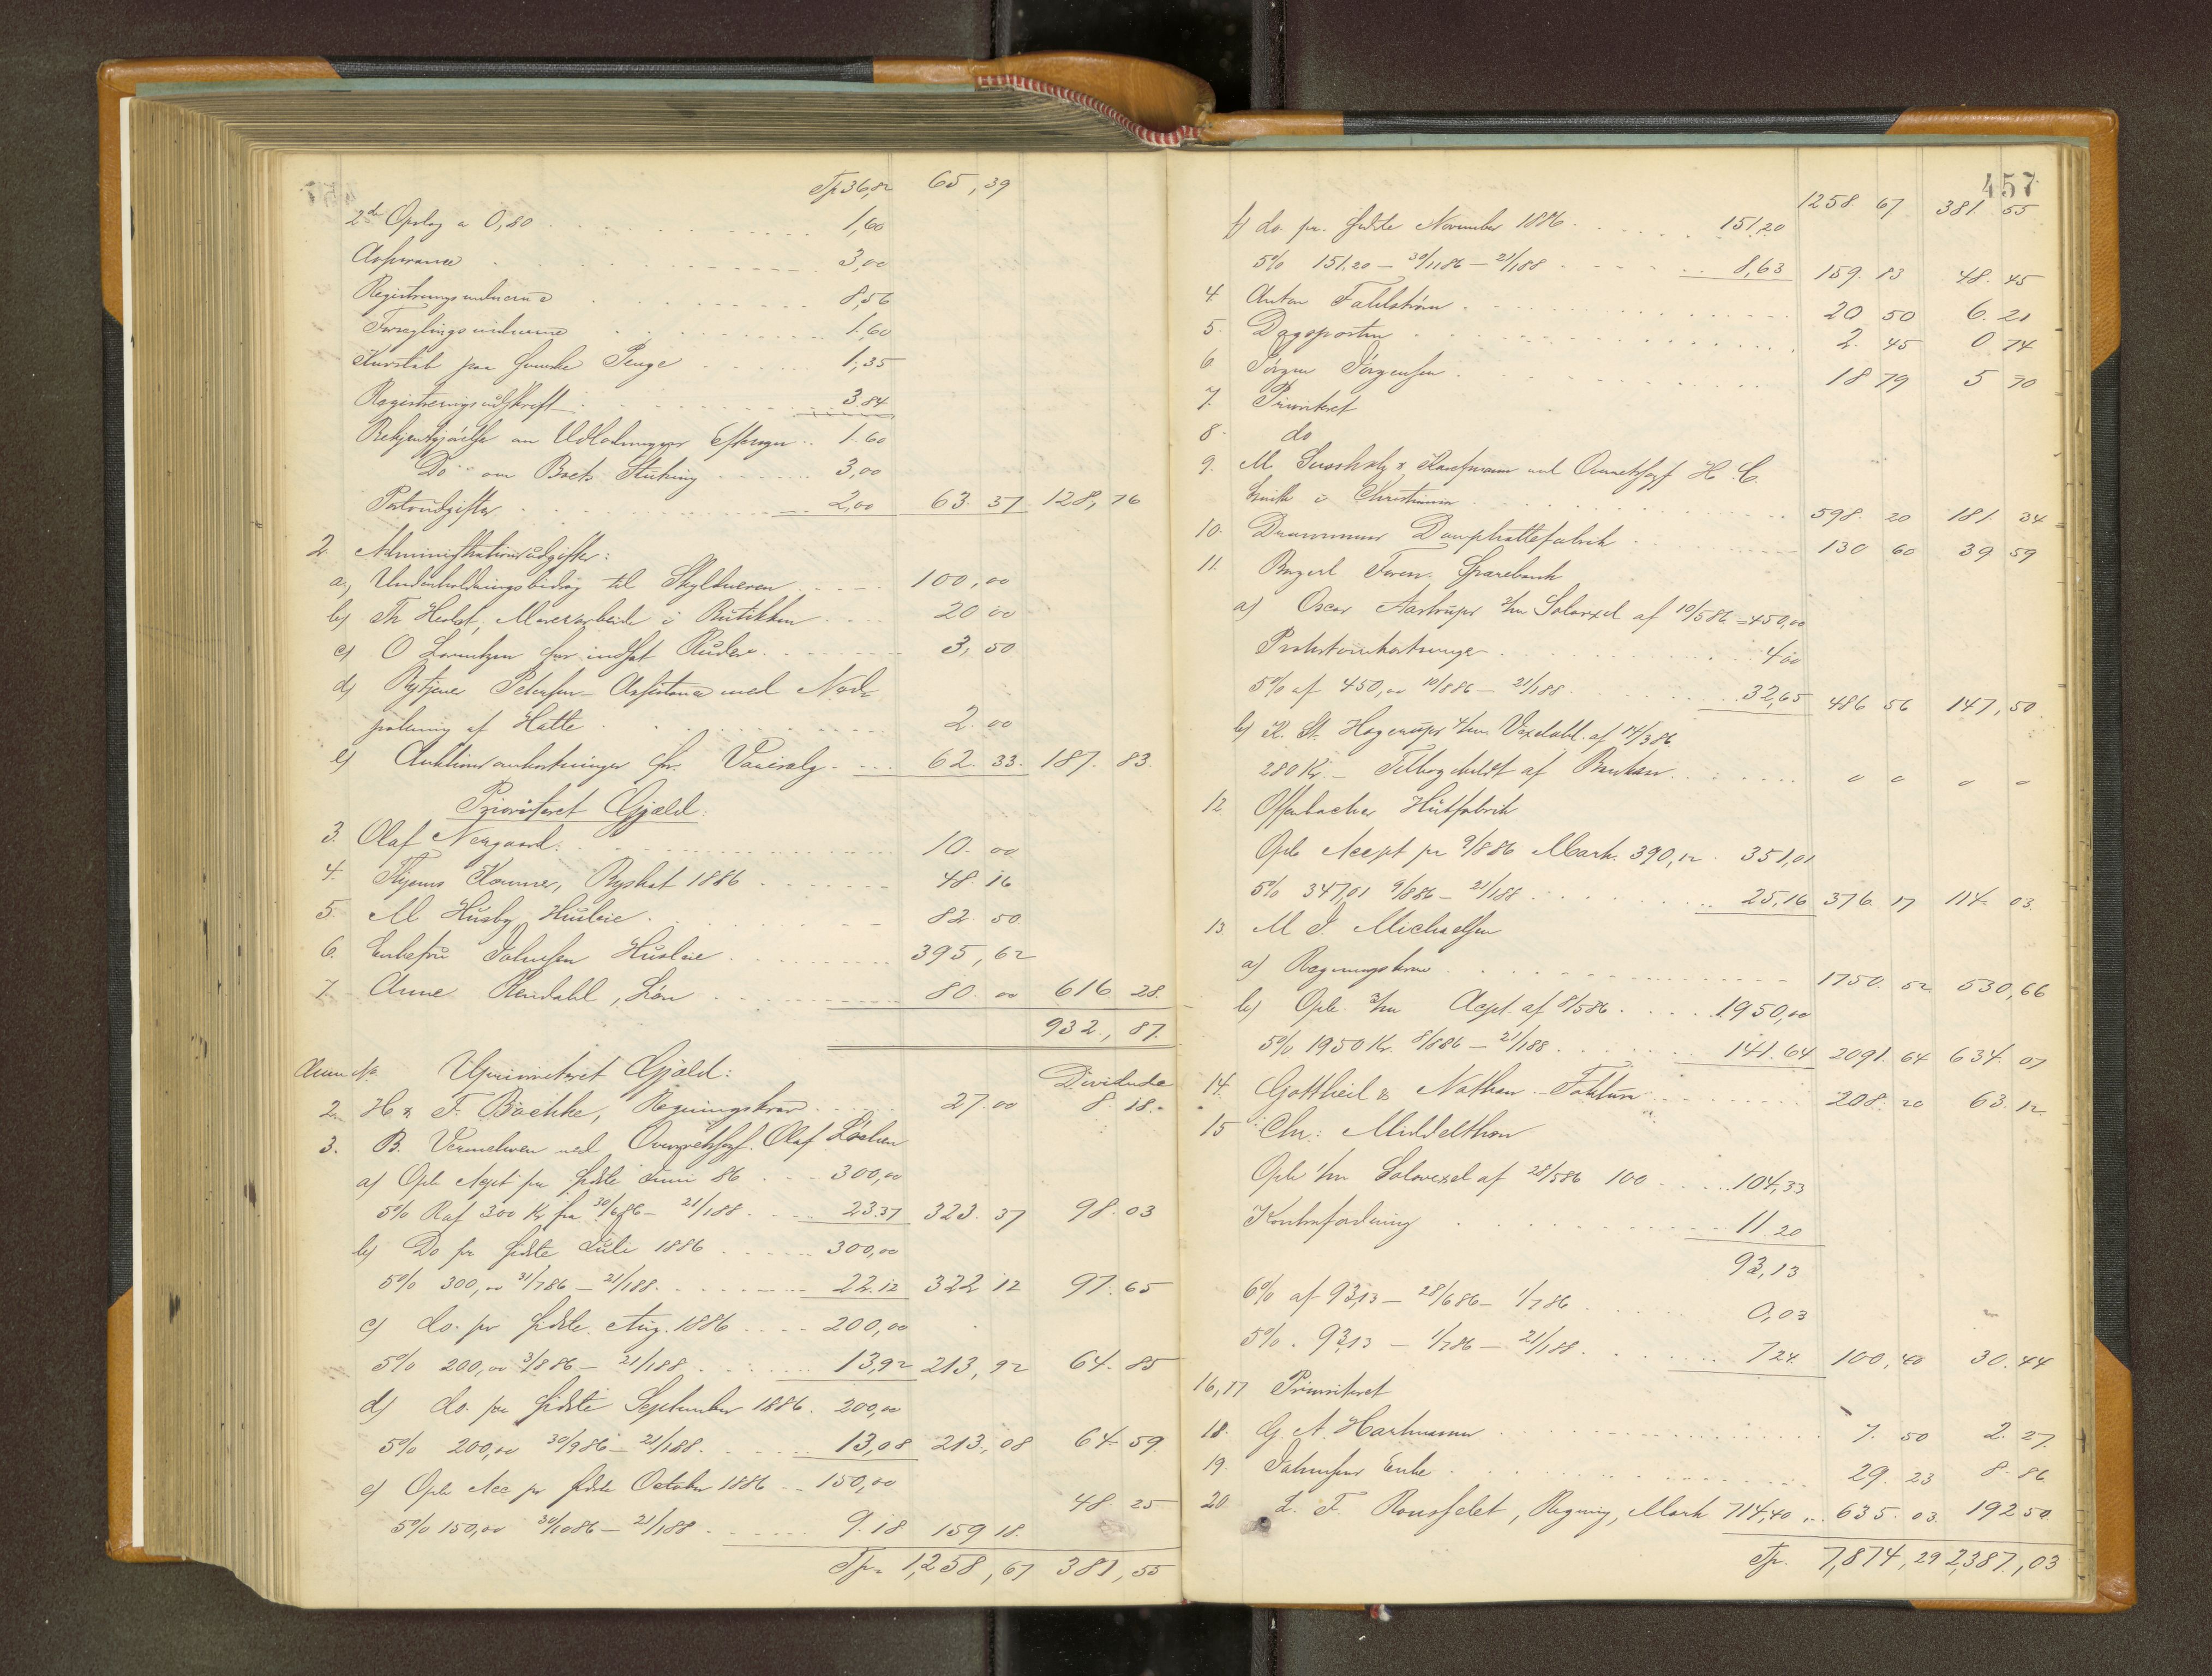 Tp. 36,82 65,39
2de Opslag a 0,80 1,60
Assurance 3,00
Registreringsinducerne 8,56
1.60
Kurstab paa svenske Penge 1,35
Registreringsudskrift 3.84
Bekjentgjørelse om 1.60
Do om Boets Slutning 3,00
Portoudgifter 2,00 63.37 128,76
2. Administrationsudgifter:
a) Underholdningsbidrag til Skyldneren 100,00
b) Th Herbst, Murerarbeide i Butikken 20 00
c) O Lorentzen for indsat Rude 3,50
d) Bytjener Petersen Assistance med Ned-
pakning af Hatte 2.00
e) Auktionsomkostninger for Varesalg 62.33. 187.83.
Prioriteret Gjæld:
3. Olaf Nergaard: 10.00
4. Thjems Kæmner, Byskat 1886 48.16
5. M Husby Husleie 82.50
6. Enkefru Johnsen Husleie 395,62
7. Anne Rendahl, Løn 80.00 616 28.
932., 87.
Anm No. Uprioriteret Gjæld: Dividende
2. H & F. Bachke, Regningskrav 27.00 8.18.
3. B. Vermehren ved Overretssagf. Olaf Løchen
a) Opb Acpt pr sidste Juni 86 300,00
5% R af 300 Kr fra 30/6 86 - 21/1 88 23.37 323.37 98.03
b) Do pr sidste Juli 1886 300,00
5% 300,00 31/7 86 - 21/1 88 22.12 322 12 97.65
c) do. pr sidste Aug. 1886 200,00
5% 200,00 31/8 86 - 21/1 88 13,92 213,92 64.85
d) do. pr sidste September 1886. 200,00
5% 200,00 30/9 86 - 21/1 88 13,08 213,08 64 59
e) Opb Acc pr sidste October 1886 150,00
5% 150,00 30/10 86 - 21/1 88 9.18 159 18. 48.25
Tp. 1,258,67 381,55
457
1258.67 381.55
f) do. pr. sidste November 1886 151,20
5% 151.20 - 30/11 86 - 21/1 88 8,63 159.83 48.45
4. Anton Fahlstrøm 20 50 6.21
5. Dagsposten 2.45 0 74
6 Jørgen Jørgensen 18 79 5 70
7. Prioriteret
8. do
9. M. & Kaufmann ved Overretssagf H. C.
i Christiania 598.20 181.34
10. Drammens Damphattefabrik 130 60 39 59
11. Sparebank
a) Oscar Aastrups 3/m Solavexel af 10/5 86 = 450,00
Protestomkostninger 4 00
5% af 450,00 10/8 86 - 21/1 88 32,65 486 56 147,50
b) K. St. Hagerups 4/m Vexelobl. af 14/3 86
280 Kr. - af Banken 0 0 0 -
12. Offenbacher Hutfabrik
Opb Accept pr 9/8 86 Mark. 390,12. 351,01
5% 347,01 9/8 86 - 21/1 88 25,16 376.17 114.03.
13. M I. Michaelsen
a) Regningskrav 1750.52 530,66
b) Opb. 3/m Acpt. af 8/5 86 1950,00
5% 1950 Kr. 8/8 86 - 21/1 88 141.64 2091.64 634.07
14. Gottheil & Nathan - Faktura 208.20 63.12.
15 Chr: Middelthon
Opb 1/m Solavexel af 28/5 86 100 104,33
Kontrafordring 11.20
93,13
6% af 93,13 - 28/6 86 - 1/7 86 0,03
5%. 93,13 - 1/7 86 - 21/1 88 7 24. 100,40 30.44
16,17 Prioriteret
18. G. A. Hartmann 7.50 2.27.
19. Johnsens Enke 29.23 8.86
20. L. F. Rousselet, Regning, Mark 714,40 635.03. 192 50
Tp. 7,874,29 2,387,03